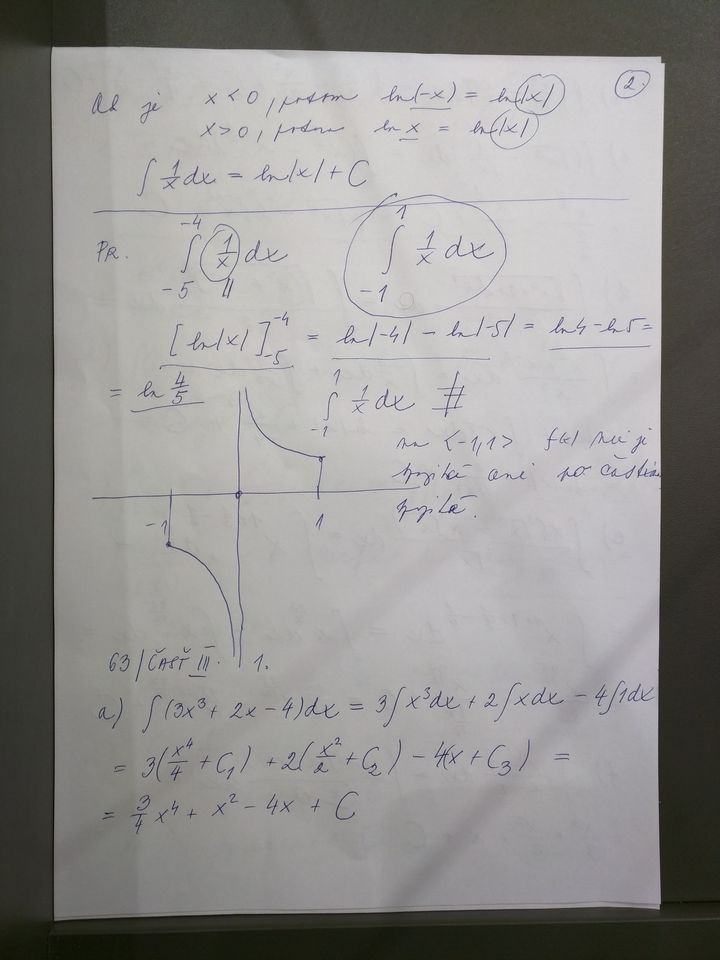 2.
Ak je x < 0, potom ln(-x) = ln|x|
x > 0, potom ln x = ln|x|
∫ 1/x dx = ln|x| + C
PR. ∫_{-5}^{-4} 1/x dx ∫_{-1}^{1} 1/x dx
[ln|x|]_{-5}^{-4} = ln|-4| - ln|-5| = ln4 - ln5 =
= ln 4/5 ∫_{-1}^{1} 1/x dx ∄
na <-1,1> f(x) nie je
spojitá ani po častiach
spojitá.
-1 1
63/ČASŤ III. 1.
a) ∫(3x³ + 2x - 4)dx = 3∫x³dx + 2∫xdx - 4∫1dx
= 3(x⁴/4 + C₁) + 2(x²/2 + C₂) - 4(x + C₃) =
= 3/4 x⁴ + x² - 4x + C